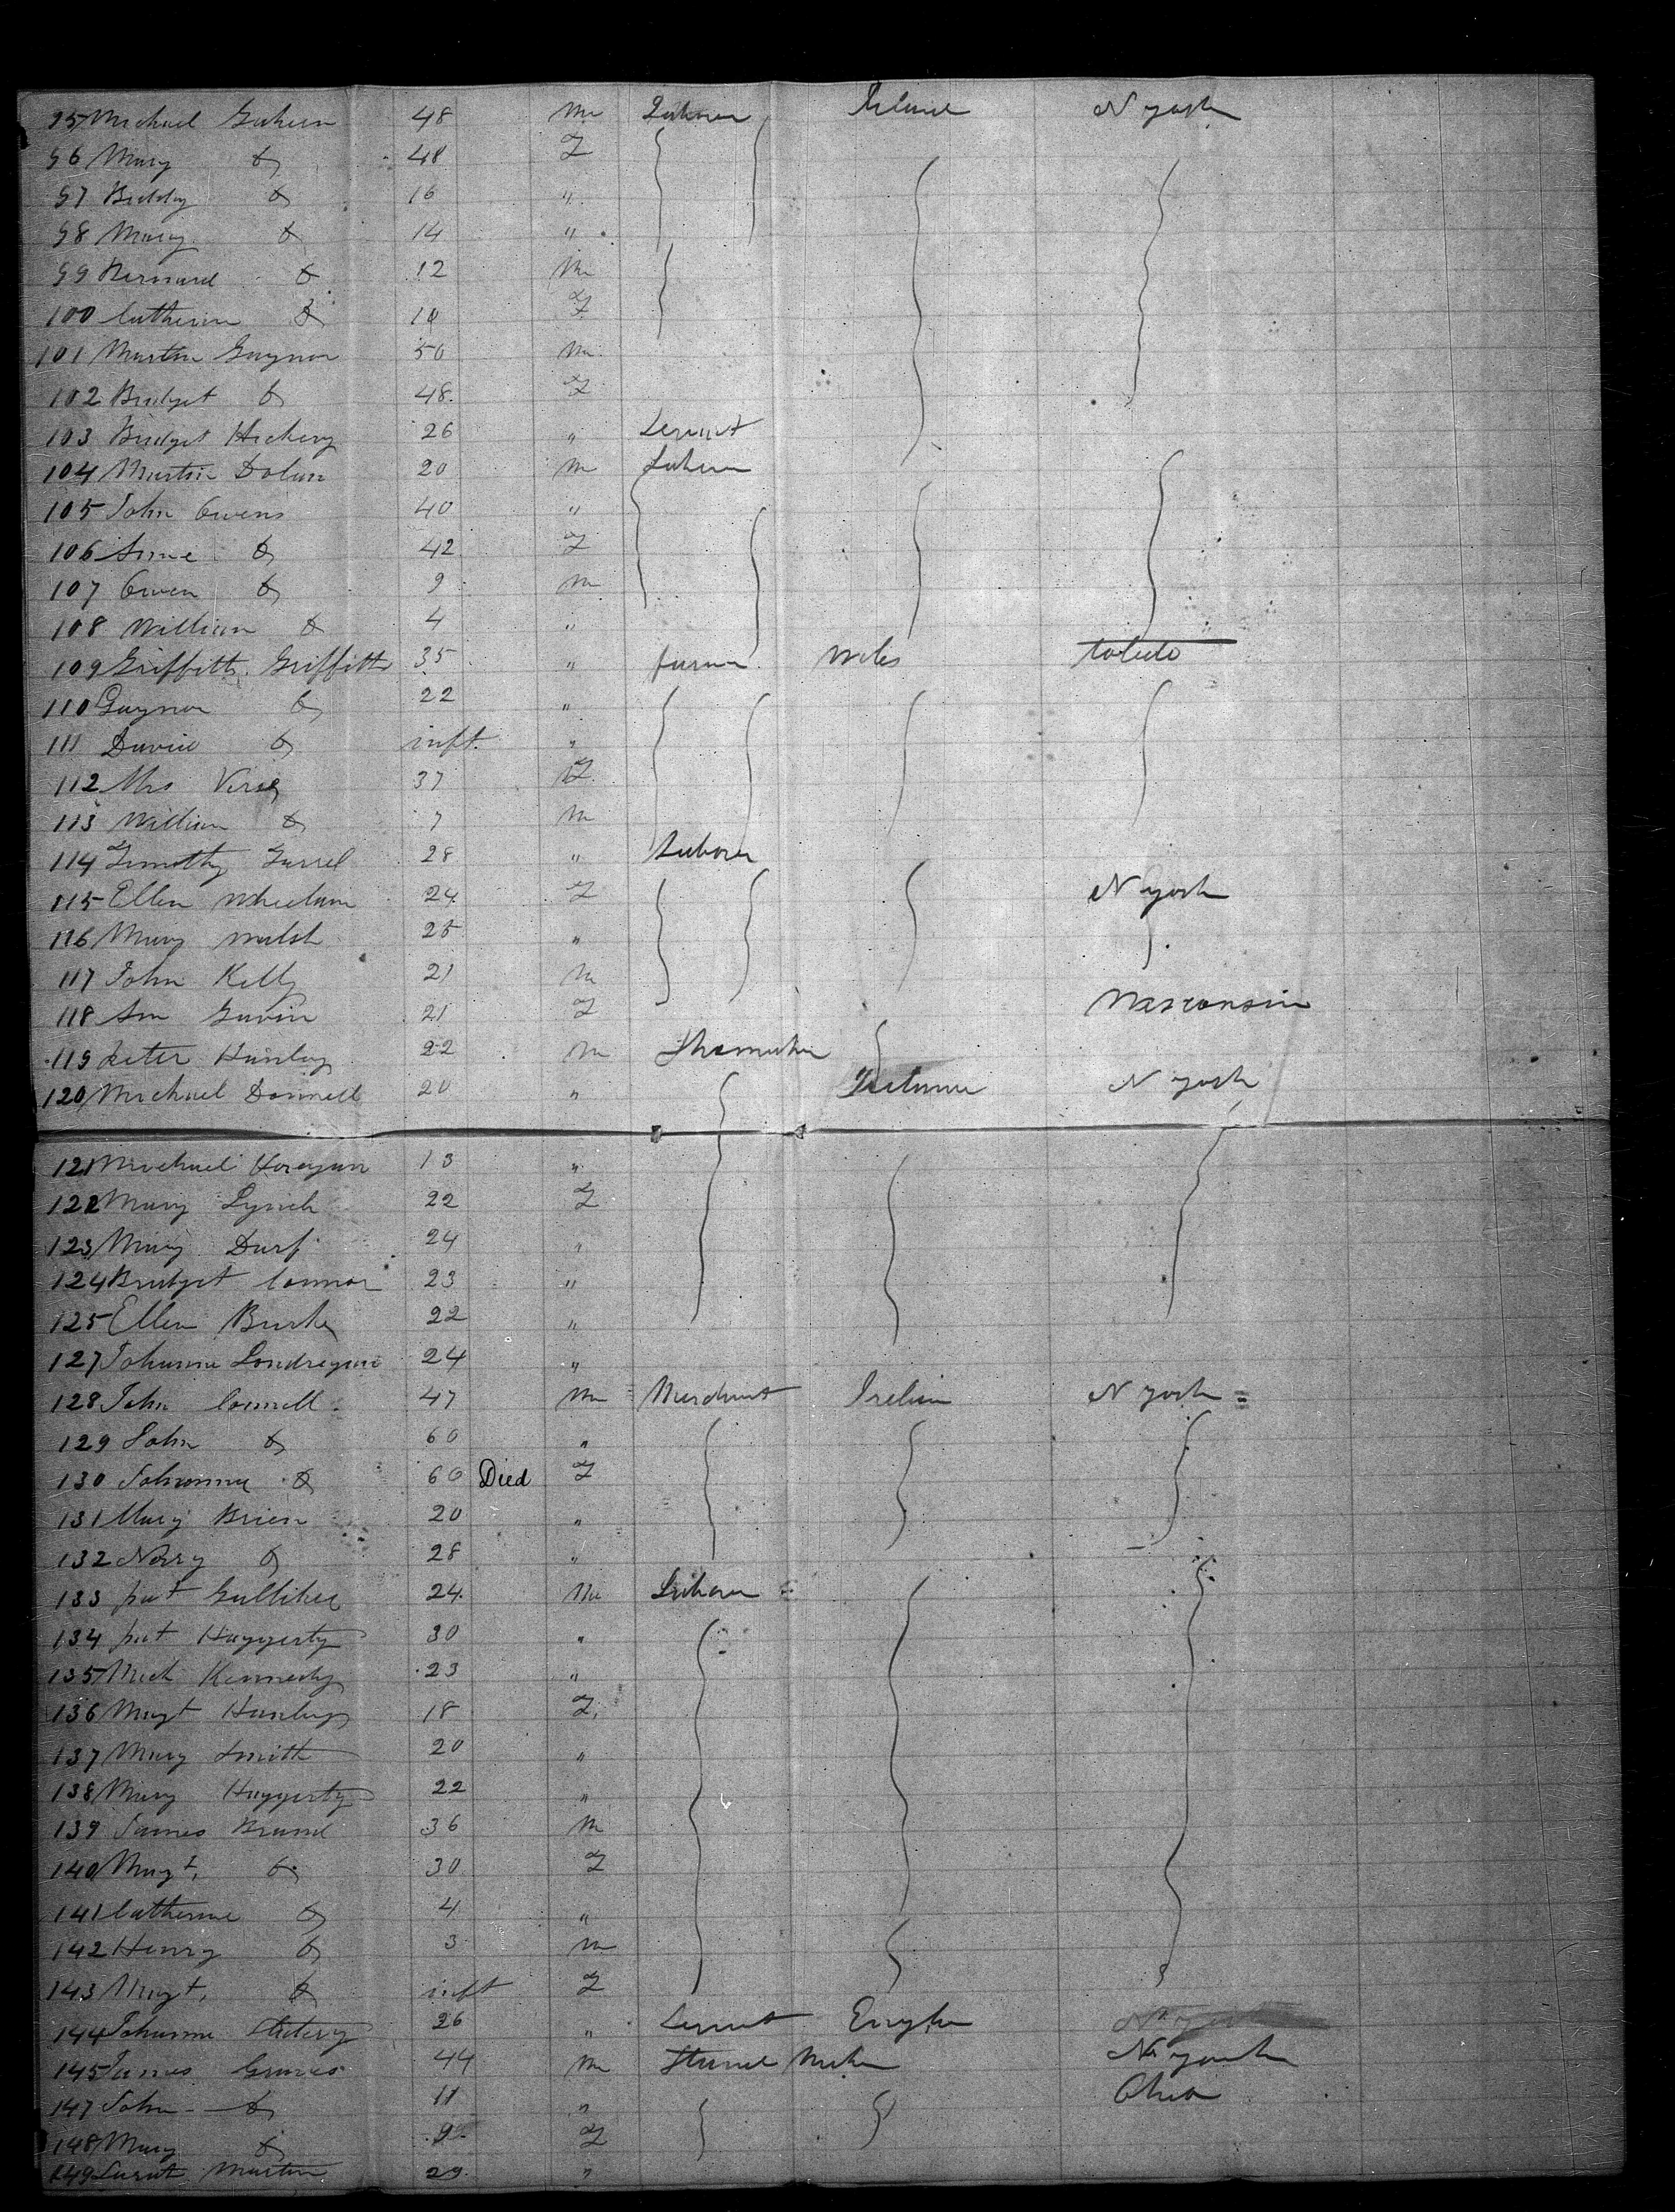 95 Michael 48 M Laborer Ireland N york
96 Mary Do 48 F
97 Biddy Do 16 "
98 Mary Do 14 "
99 Bernard Do 12 M
100 Catherine Do 10 F
101 Martin Gaynor 50 M
102 Bridget Do 48 F
103 Bridget Hickey 26 " Servant
104 Martin Dolan 20 M Laborer
105 John Owens 40 "
106 Anne Do 42 F
107 Owen Do 9 M
108 William Do 4 "
109 Griffith Griffith 35 " farmer Wales toledo
110 Gaynor Do 22 "
111 David Do inft. "
112 Mrs 37 F
113 William Do 7 M
114 Timothy 28 " Laborer
115 Ellen Wheelan 24 F N york
116 Mary Walsh 25 "
117 John Kelly 21 M
118 Ann Gavin 21 F Wisconsin
119 Peter Hanley 22 M Shomaker
120 Michael Donnell 20 " Ireland N york
121 Michael Horegan 13 "
122 Mary Lynch 22 F
123 Mary 24 "
124 Bridget Connor 23 "
125 Ellen Burke 22 "
127 Johanna Londregan 24 "
128 John Connell 47 M Merchant N york =
129 John Do 60 "
130 Johanna Do 60 Died F
131 Mary Brien 20 "
132 Norry Do 28 "
133 pat 24 M Laborer
134 pat Haggerty 30 "
135 Mich Kennedy 23 "
136 Magt Hanley 18 F
137 Mary Smith 20 "
138 Mary Haggerty 22 "
139 James 36 M
140 Magt. Do 30 F
141 Catherine Do 4 "
142 Henry Do 3 M
143 Magt. Do inft F
144 Johanna 26 " Servant N york
145 James Graves 44 M N york
147 John Do 11 " Ohio
148 Mary Do 9 F
149 Martin 29 "